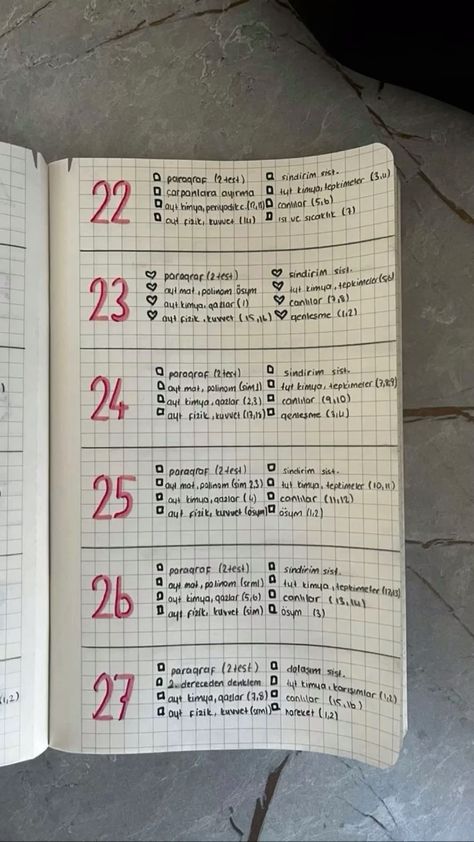 22
paragraf (2 test)
çarpanlara ayırma
ayt kimya, periyodik c.
ayt fizik, kuvvet (14)
sindirim sist.
tyt kimya, tepkimeler (3,4)
canlılar (5,6)
ısı ve sıcaklık (7)
23
paragraf (2 test)
ayt mat, polinom ösym
ayt kimya, gazlar (1)
ayt fizik, kuvvet (15,16)
sindirim sist.
tyt kimya, tepkimeler (5,6)
canlılar (7,8)
genleşme (1,2)
24
paragraf (2 test)
ayt mat, polinom (sim1)
ayt kimya, gazlar (2,3)
ayt fizik, kuvvet
sindirim sist.
tyt kimya, tepkimeler (7,8,9)
canlılar (9,10)
genleşme (3,4)
25
paragraf (2 test)
ayt mat, polinom (sim 2,3)
ayt kimya, gazlar (4)
ayt fizik, kuvvet (ösym)
sindirim sist.
tyt kimya, tepkimeler (10,11)
canlılar (11,12)
ösym (1,2)
26
paragraf (2 test)
ayt mat, polinom
ayt kimya, gazlar (5,6)
ayt fizik, kuvvet (sim)
sindirim sist.
tyt kimya, tepkimeler (12,13)
canlılar (13,14)
ösym (3)
27
paragraf (2 test)
2. dereceden denklem
ayt kimya, gazlar (7,8)
ayt fizik, kuvvet
dolaşım sist.
tyt kimya, karışımlar (1,2)
canlılar (15,16)
hareket (1,2)